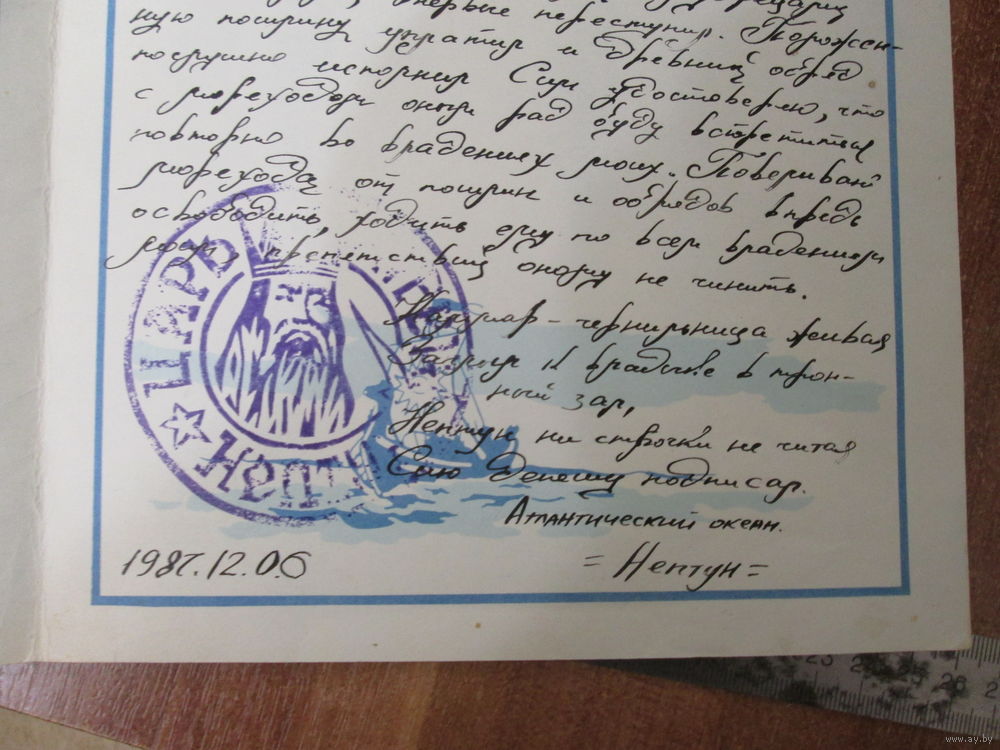 впервые переступил. Положен-
ную пошлину уплатил и древний обряд
послушно исполнил Сим удостоверяю, что
с мореходом оным рад буду встретиться
повторно во владениях моих. Повелеваю
морехода от пошлин и обрядов впредь
освободить, ходить ему по всем владениям
моим, препятствий оному не чинить.
Кальмар - чернильница живая
Заплыл к владыке в трон-
ный зал,
Нептун ни строчки не читая
Сию депешу подписал.
Атлантический океан.
1987.12.06
= Нептун =
ЦАРЬ
НЕПТУН
23 24 25 26
www.ay.by